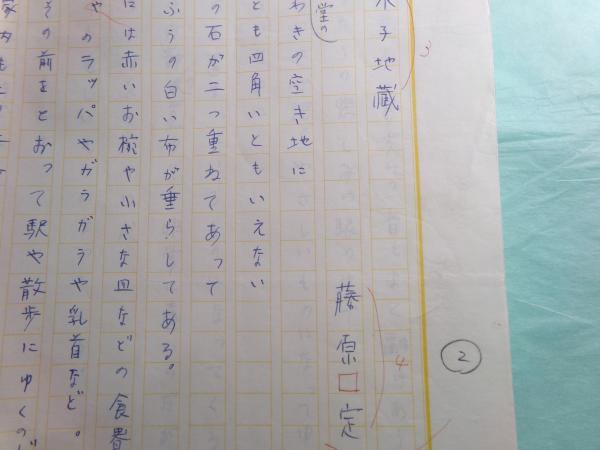 水子地蔵
3
藤原□定
4
②
堂の
わきの空き地に
とも四角いともいえない
の石が二つ重ねてあって
ふうの白い布が垂らしてある。
には赤いお椀や小さな皿などの食器
や
のラッパやガラガラや乳首など。
その前をとおって駅や散歩にゆくの